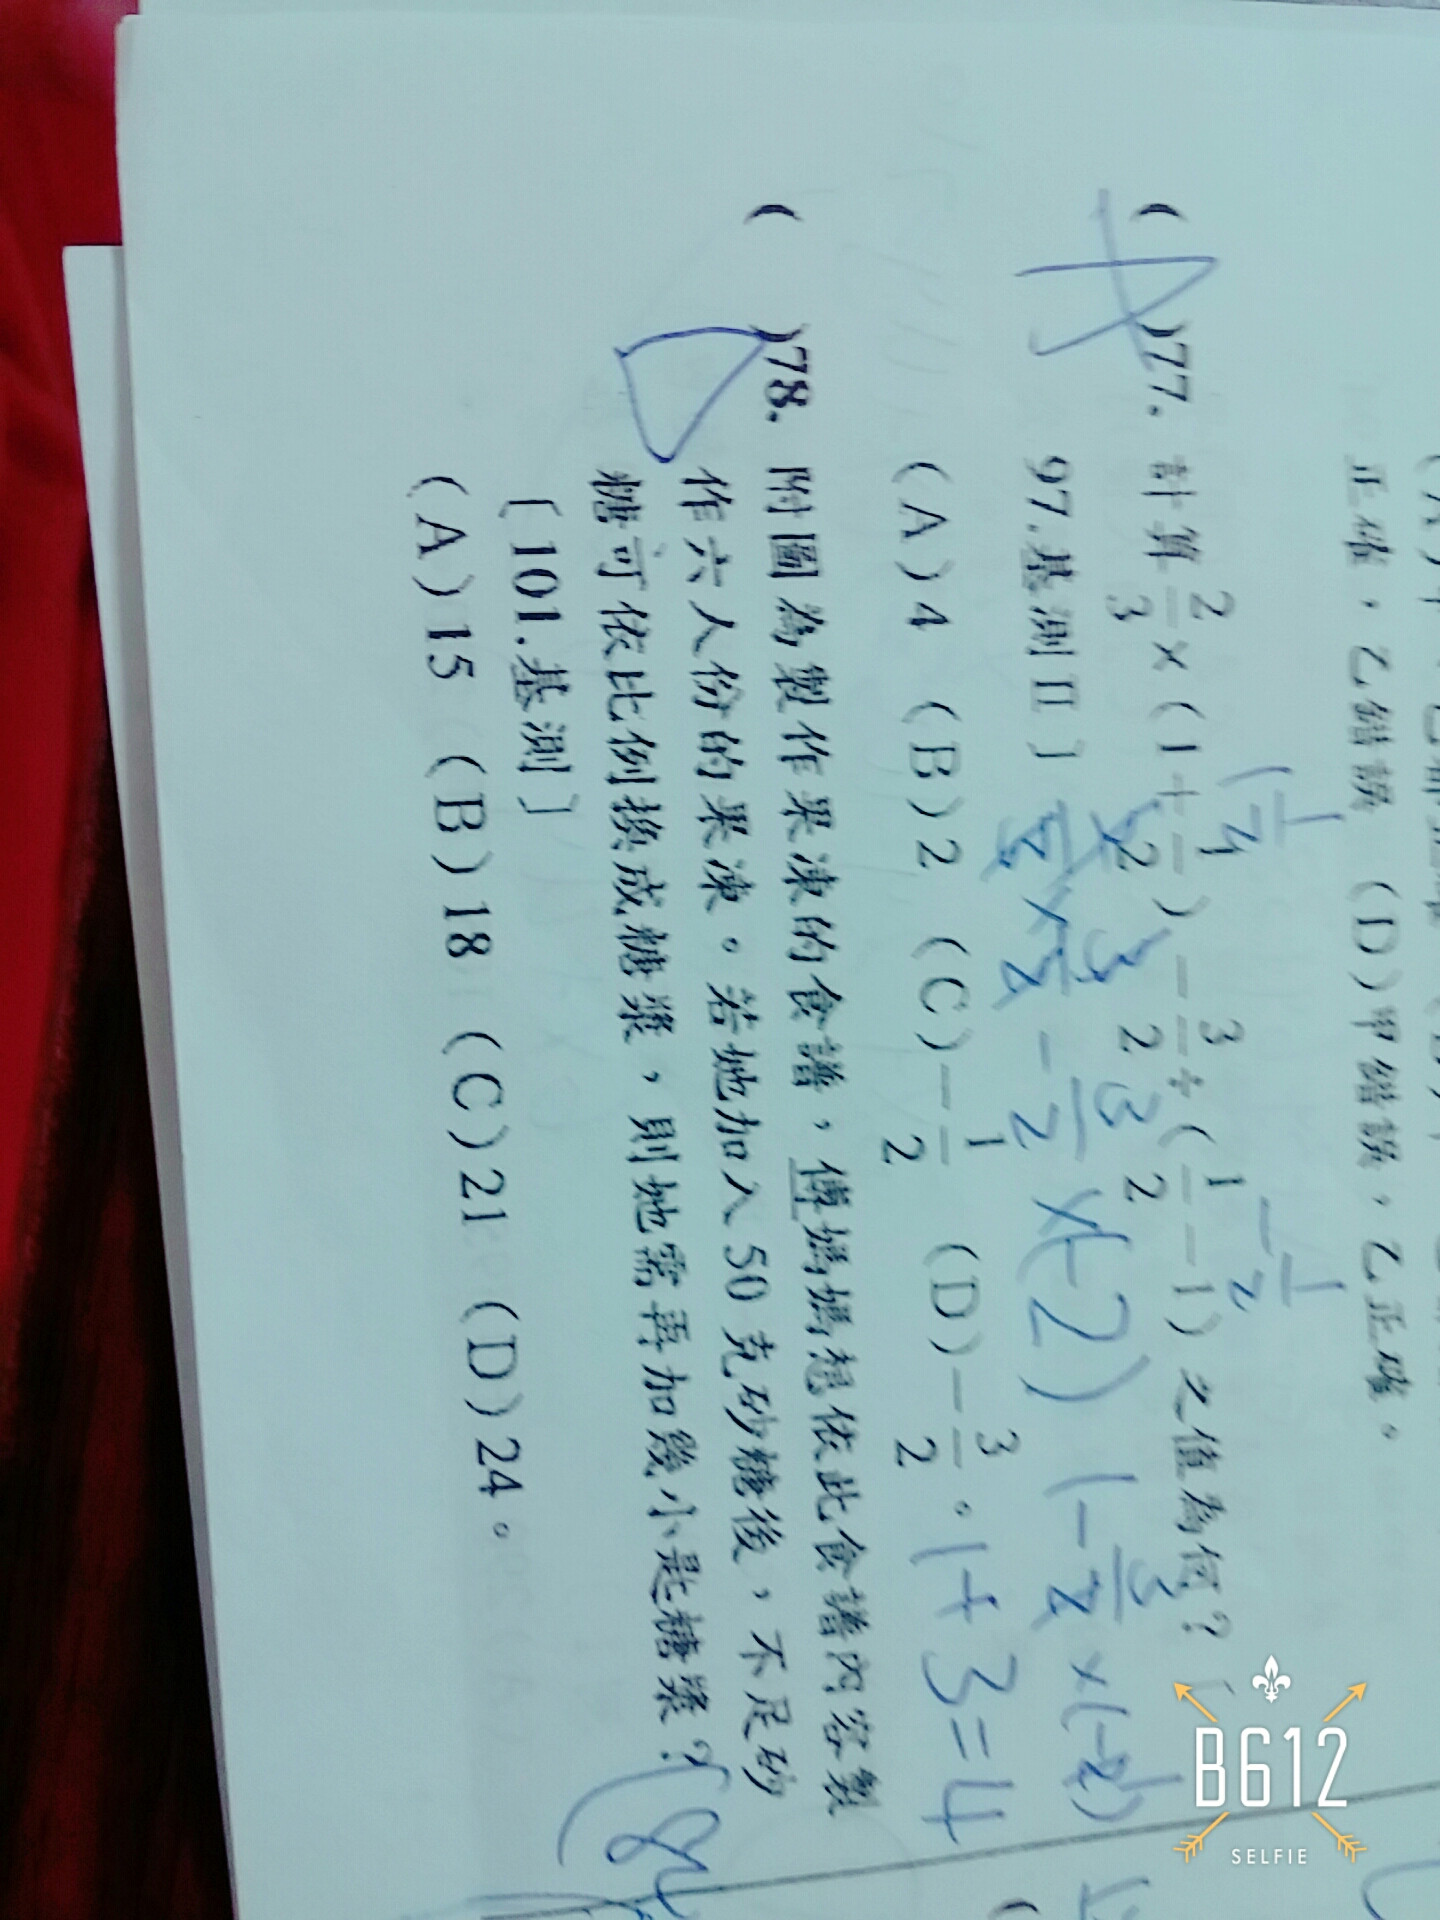 正確，乙錯誤 (D)甲錯誤，乙正確。
1 1/2
-1/2
( )77. 計算 2/3 × (1 + 1/2) - 3/2 ÷ (1/2 - 1) 之值為何？〔
97.基測Ⅱ〕
- 3/2 ×(-2) 1 - 3/2 ×(-2)
(A)4 (B)2 (C)-1/2 (D)-3/2。
1+3=4
( )78. 附圖為製作果凍的食譜，傅媽媽想依此食譜內容製
作六人份的果凍。若她加入50克砂糖後，不足砂
糖可依比例換成糖漿，則她需再加幾小匙糖漿？
〔101.基測〕
(A)15 (B)18 (C)21 (D)24。
B612
SELFIE